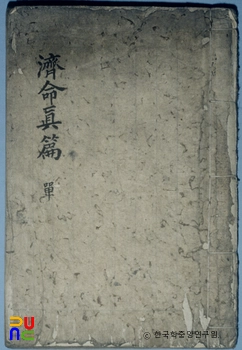 濟命眞篇
單
© 한국학중앙연구원